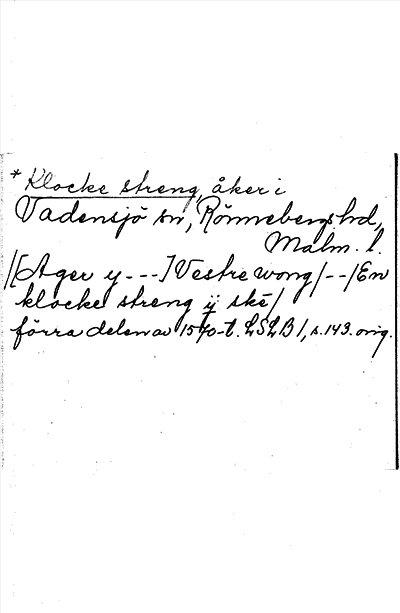 * Klocke streng, åker i
Vadensjö sn, Rönnebergs hd,
Malm. l.
/[Ager y---] Vestre wong/--/En
klocke streng ij ske/
förra delen av 1570-t. LSLB 1, s. 143. orig.